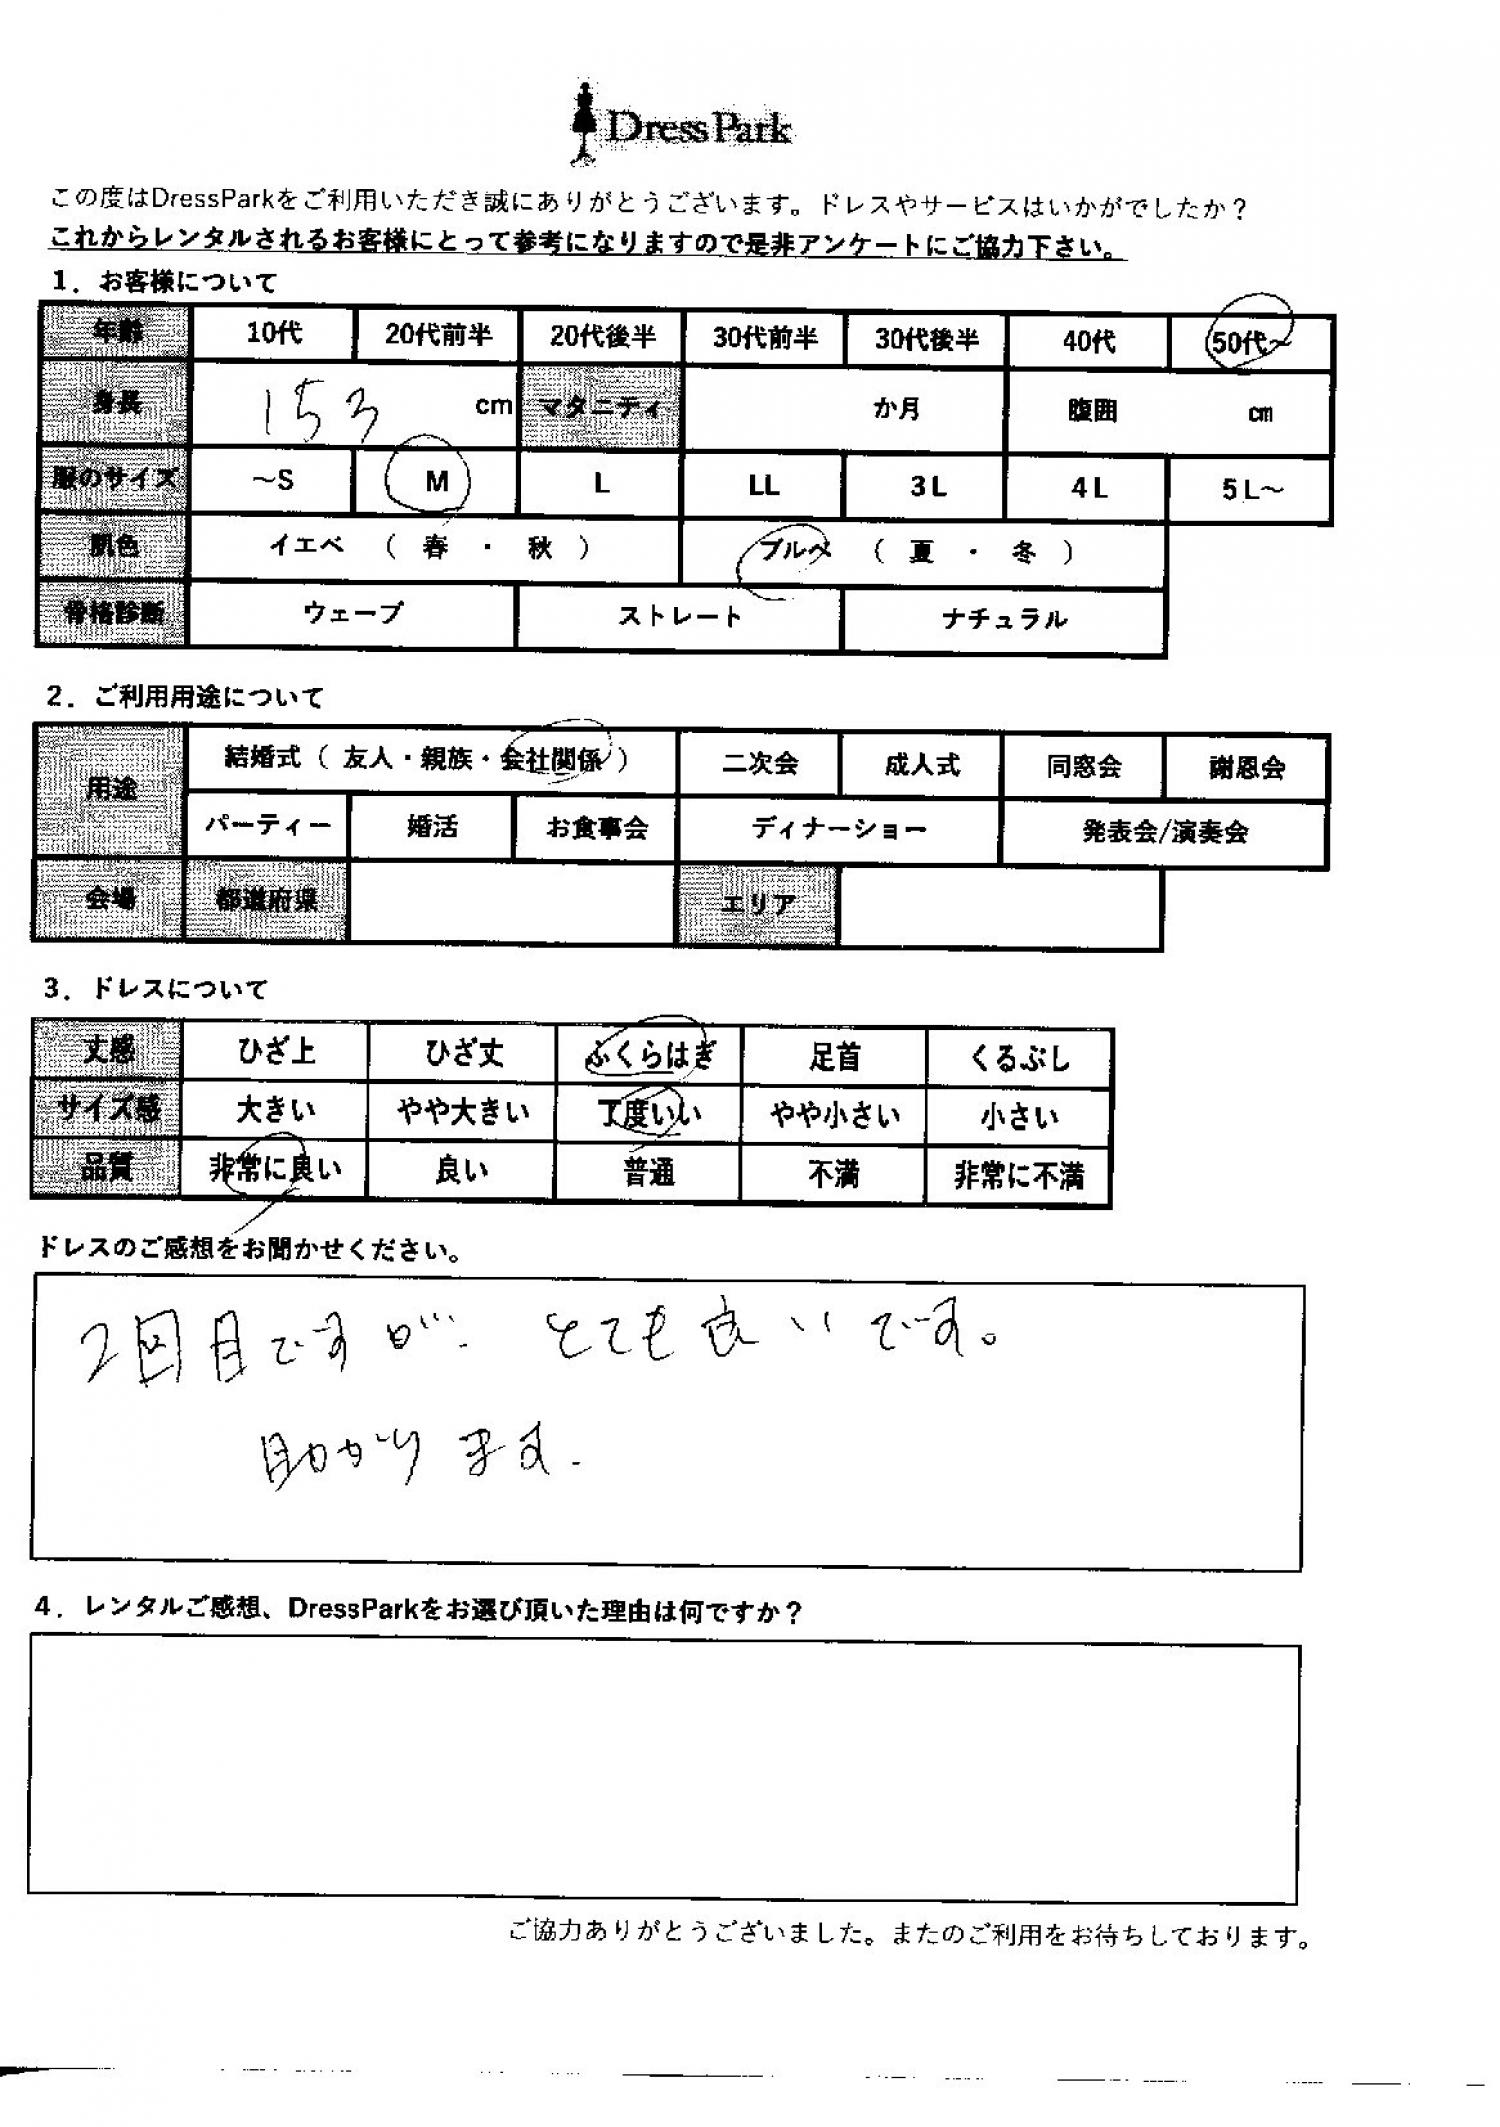 DressPark
この度はDressParkをご利用いただき誠にありがとうございます。ドレスやサービスはいかがでしたか？
これからレンタルされるお客様にとって参考になりますので是非アンケートにご協力下さい。
1．お客様について
年齢 10代 20代前半 20代後半 30代前半 30代後半 40代 50代～
身長 153 cm マタニティ か月 腹囲 cm
服のサイズ ～S M L LL 3L 4L 5L～
肌色 イエベ （ 春 ・ 秋 ） ブルベ （ 夏 ・ 冬 ）
骨格診断 ウェーブ ストレート ナチュラル
2．ご利用用途について
用途 結婚式（ 友人・親族・会社関係 ） 二次会 成人式 同窓会 謝恩会
パーティー 婚活 お食事会 ディナーショー 発表会/演奏会
会場 都道府県 エリア
3．ドレスについて
丈感 ひざ上 ひざ丈 ふくらはぎ 足首 くるぶし
サイズ感 大きい やや大きい 丁度いい やや小さい 小さい
品質 非常に良い 良い 普通 不満 非常に不満
ドレスのご感想をお聞かせください。
2回目ですが、とても良いです。
助かります.
4．レンタルご感想、DressParkをお選び頂いた理由は何ですか？
ご協力ありがとうございました。またのご利用をお待ちしております。